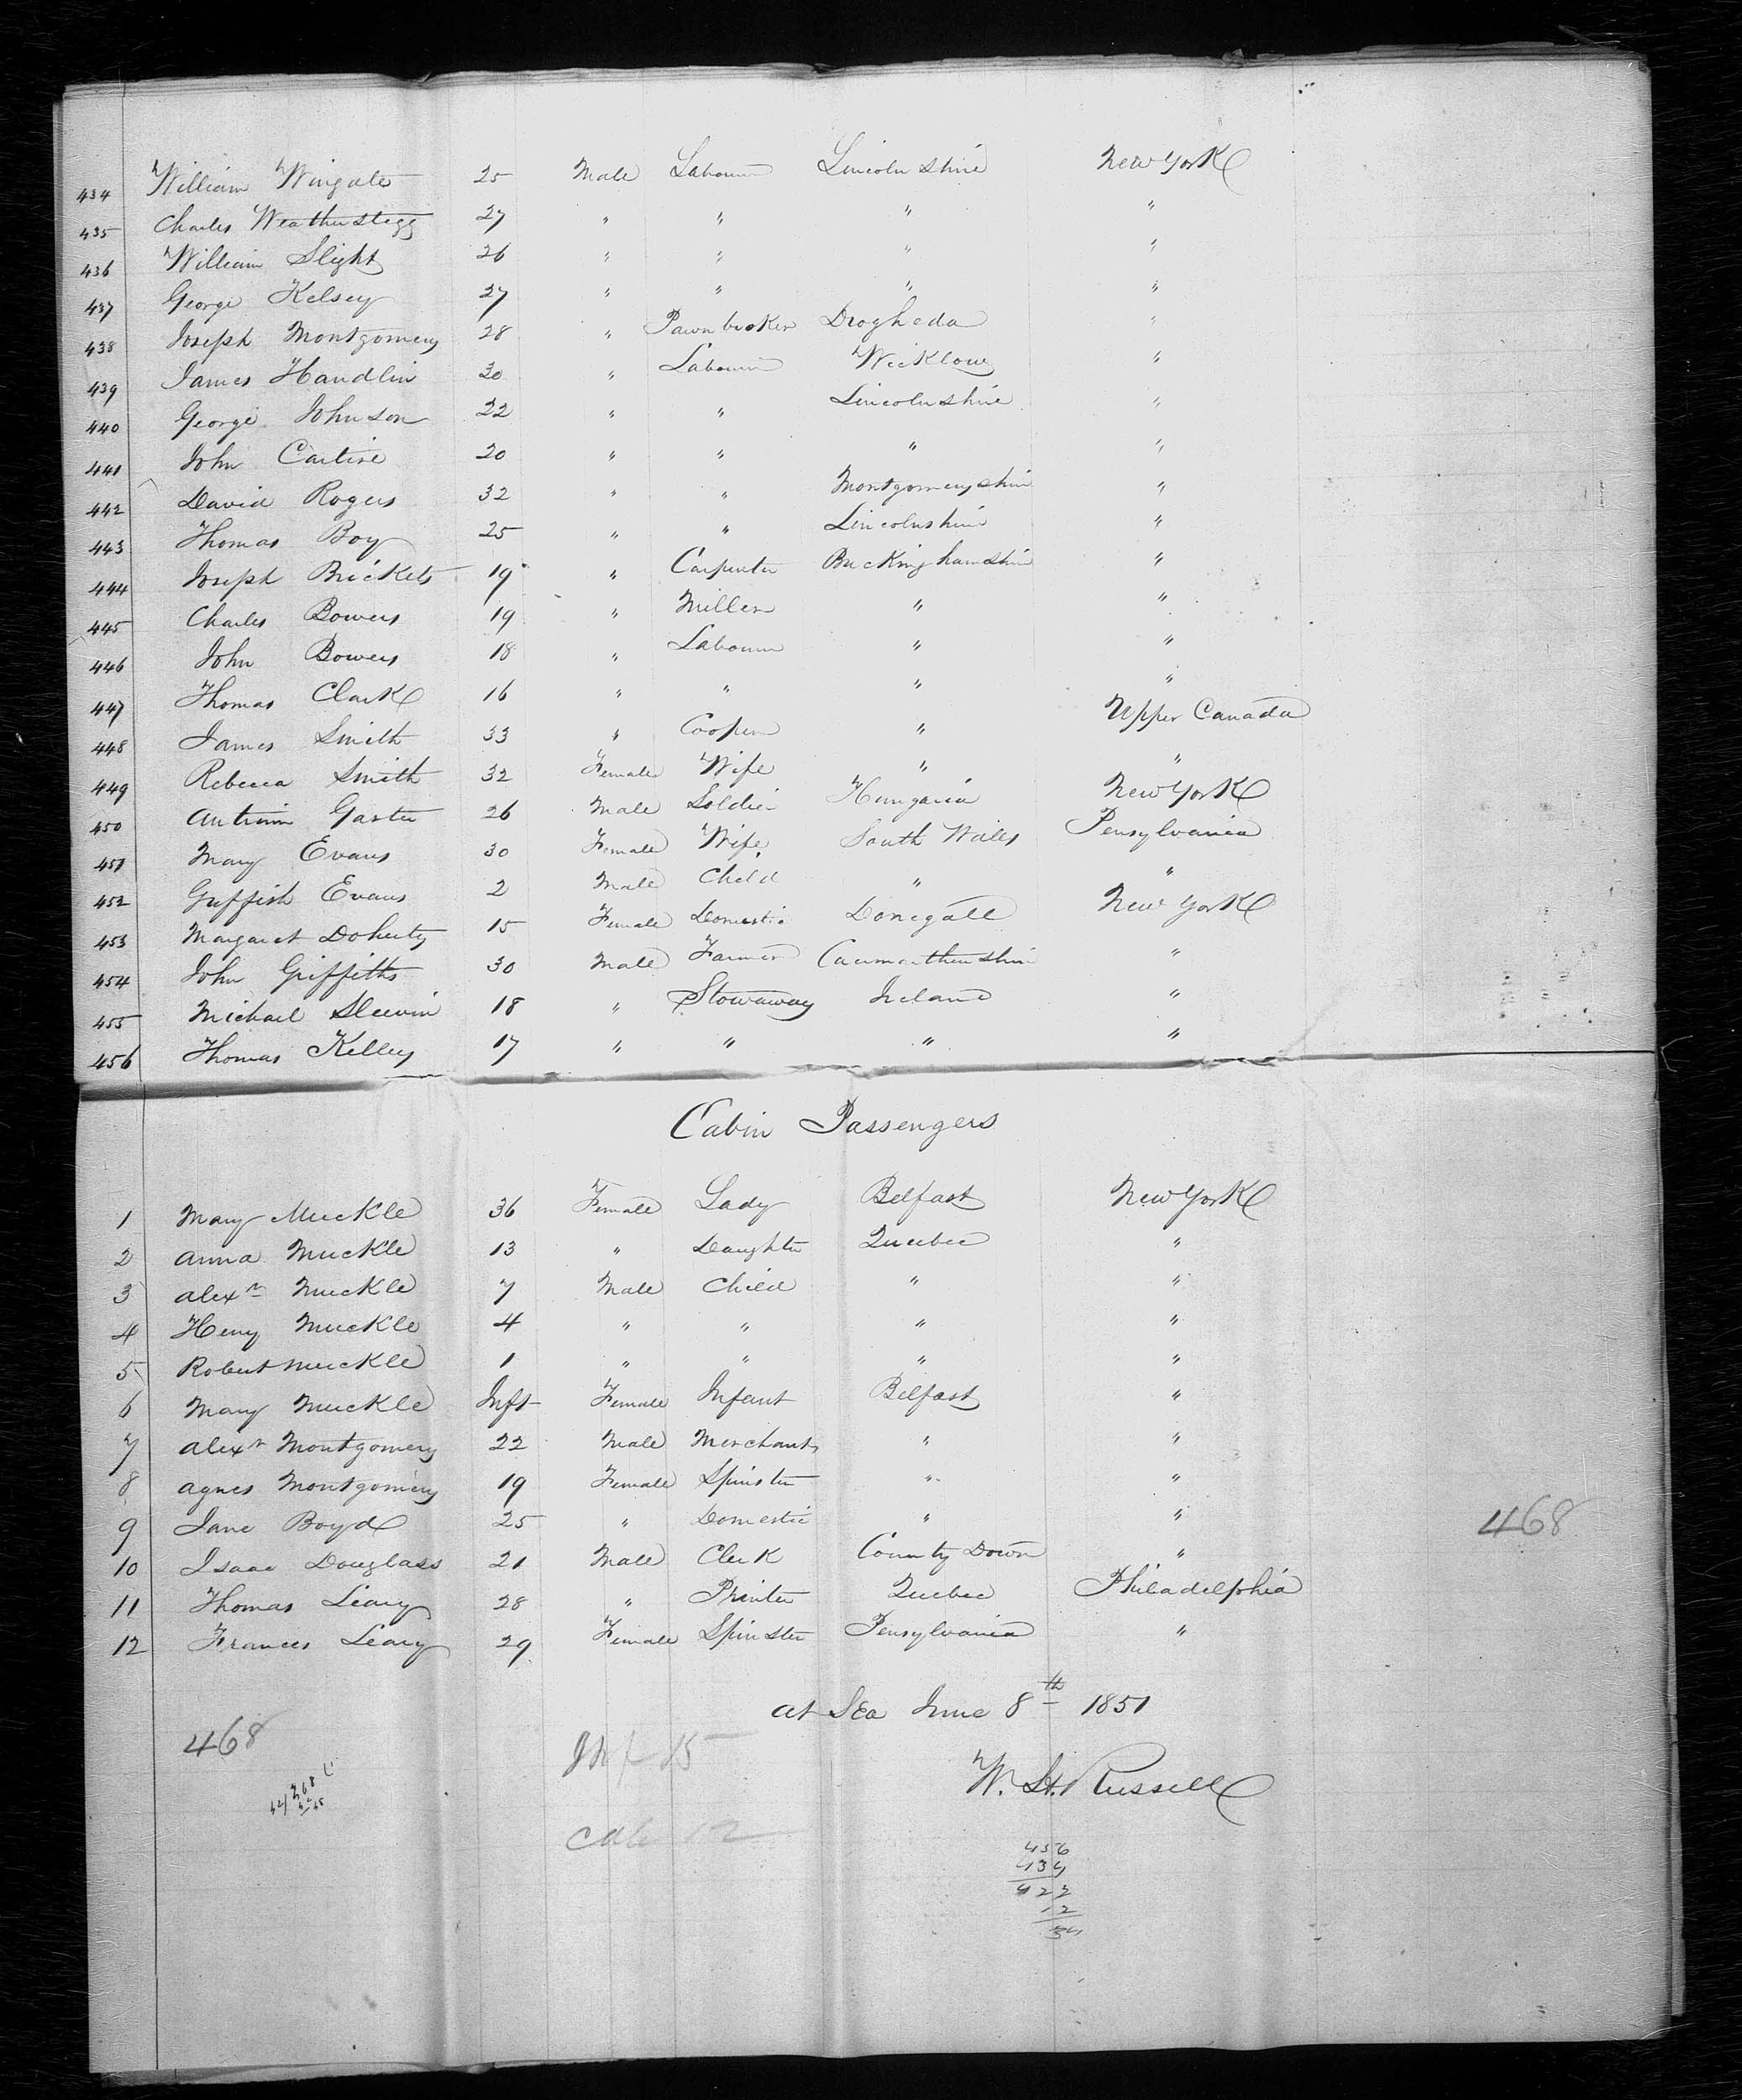 434 William Wingate 25 Male Labourer Lincolnshire New York
435 Charles Weatherstegg 27 " " " "
436 William Slight 26 " " " "
437 George Kelsey 27 " " " "
438 Joseph Montgomery 28 " Pawnbroker Drogheda "
439 James Handlin 30 " Labourer Wicklow "
440 George Johnson 22 " " Lincolnshire "
441 John 20 " " " "
442 David Rogers 32 " " Montgomeryshire "
443 Thomas Boy 25 " " Lincolnshire "
444 Joseph Brickets 19 " Carpenter Buckinghamshire "
445 Charles Bowers 19 " Miller " "
446 John Bowers 18 " Labourer " "
447 Thomas Clark 16 " " " "
448 James Smith 33 " Cooper " Upper Canada
449 Rebecca Smith 32 Female Wife " "
450 Garter 26 Male Soldier Hungaria New York
451 Mary Evans 30 Female Wife South Wales Pensylvania
452 Evans 2 Male Child " "
453 Margaret Doherty 15 Female Domestic Donegall New York
454 John Griffiths 30 Male Farmer Caermarthenshire "
455 Michael Slevin 18 " Stowaway Ireland "
456 Thomas Kelley 17 " " " "
Cabin Passengers
1 Mary Muckle 36 Female Lady Belfast New York
2 Anna Muckle 13 " Daughter Quebec "
3 Alexr Muckle 7 Male Child " "
4 Henry Muckle 4 " " " "
5 Robert Muckle 1 " " " "
6 Mary Muckle Inft Female Infant Belfast "
7 Alexr Montgomery 22 Male Merchant " "
8 Agnes Montgomery 19 Female Spinster " "
9 Jane Boyd 25 " Domestic " "
468
10 Isaac Douglass 21 Male Clerk County Down "
11 Thomas Leary 28 " Printer Quebec Philadelphia
12 Frances Leary 29 Female Spinster Pensylvania "
At Sea June 8th 1851
468
Inf 15
W. St. Russell
12
456
434
422
12